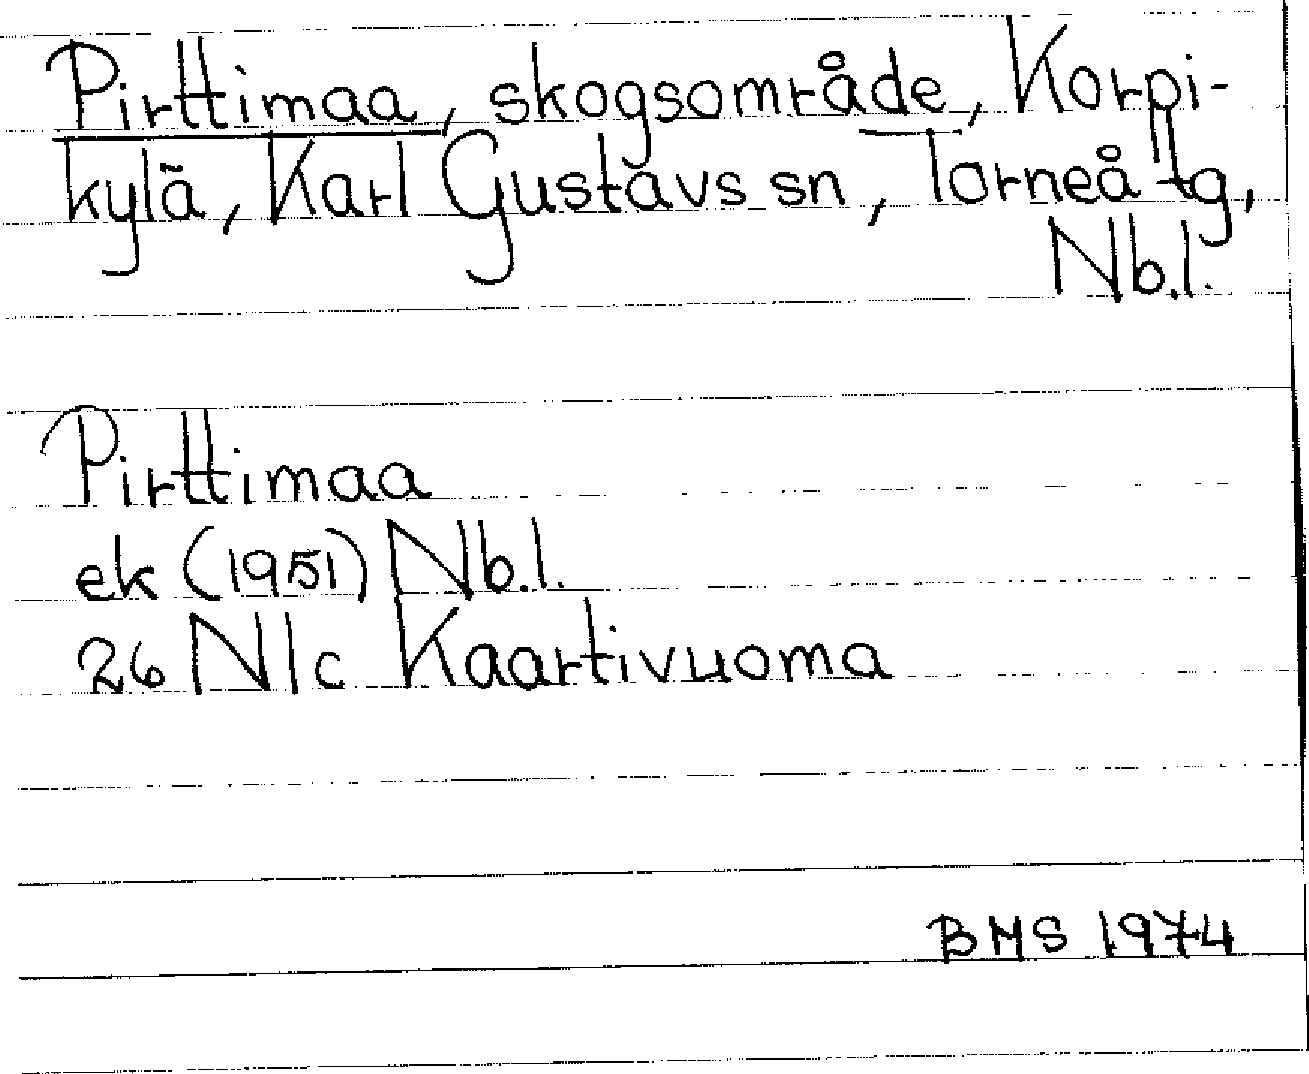 Pirttimaa, skogsområde, Korpi-
kylä, Karl Gustavs sn, Torneå tg,
Nb.l.
Pirttimaa
ek (1951) Nb.l.
26 N/c Kaartivuoma
BMS 1974